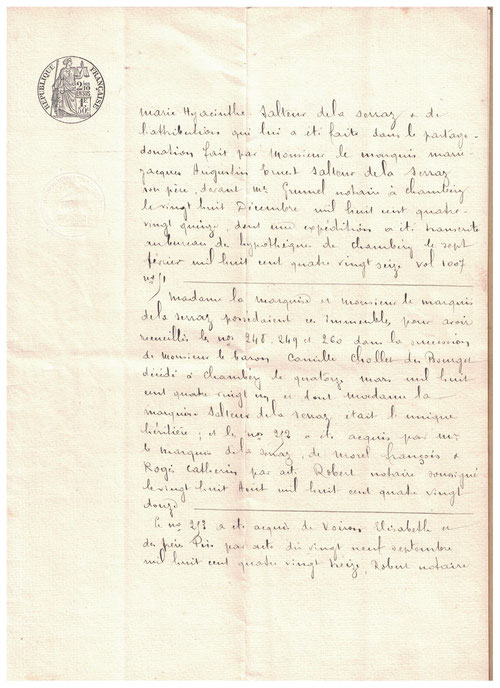 RÉPUBLIQUE FRANÇAISE
marie Hyacinthe Salteur de la Serraz e de
l'attribution qui lui a été faite dans le partage-
donation fait par Monsieur le marquis marie
jacques Augustin Ernest Salteur de la Serraz
son père, devant Me notaire à Chambéry
le vingt huit Décembre mil huit cent quatre-
vingt quinze, dont une expédition a été transcrite
au bureau de hypothèque de Chambéry le sept
février mil huit cent quatre vingt seize vol 1007
no
Madame la marquise et Monsieur le marquis
de la Serraz possédaient ces immeubles pour avoir
recueillis le nos 248, 249 et 260 dans la succession
de Monsieur le baron Camille Chollet du Bourget
décédé à Chambéry le quatorze mars mil huit
cent quatre vingt un et dont madame la
marquise Salteur de la Serraz était l'unique
héritière ; et le no 212 a été acquis par Mr
le marquis de la Serraz, de Morel François e
Rogès Catherin par acte Robert notaire soussigné
le vingt huit Août mil huit cent quatre vingt
douze
Le no 213 a été acquis de Voiron Elisabeth et
par acte du vingt neuf septembre
mil huit cent quatre vingt treize, Robert notaire